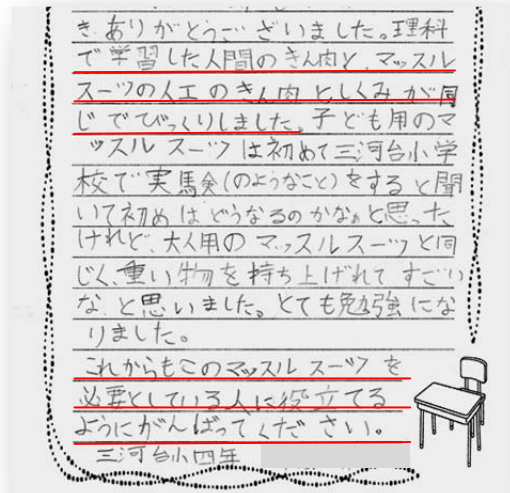 き、ありがとうございました。理科
で学習した人間のきん肉と、マッスル
スーツの人工のきん肉としくみが同
じでびっくりしました。子ども用のマ
ッスルスーツは初めて三河台小学
校で実験(のようなこと)をすると聞
いて初めはどうなるのかなぁと思った
けれど、大人用のマッスルスーツと同
じく、重い物を持ち上げれてすごい
な、と思いました。とても勉強にな
りました。
これからもこのマッスルスーツを
必要としている人に役立てる
ようにがんばってください。
三河台小四年